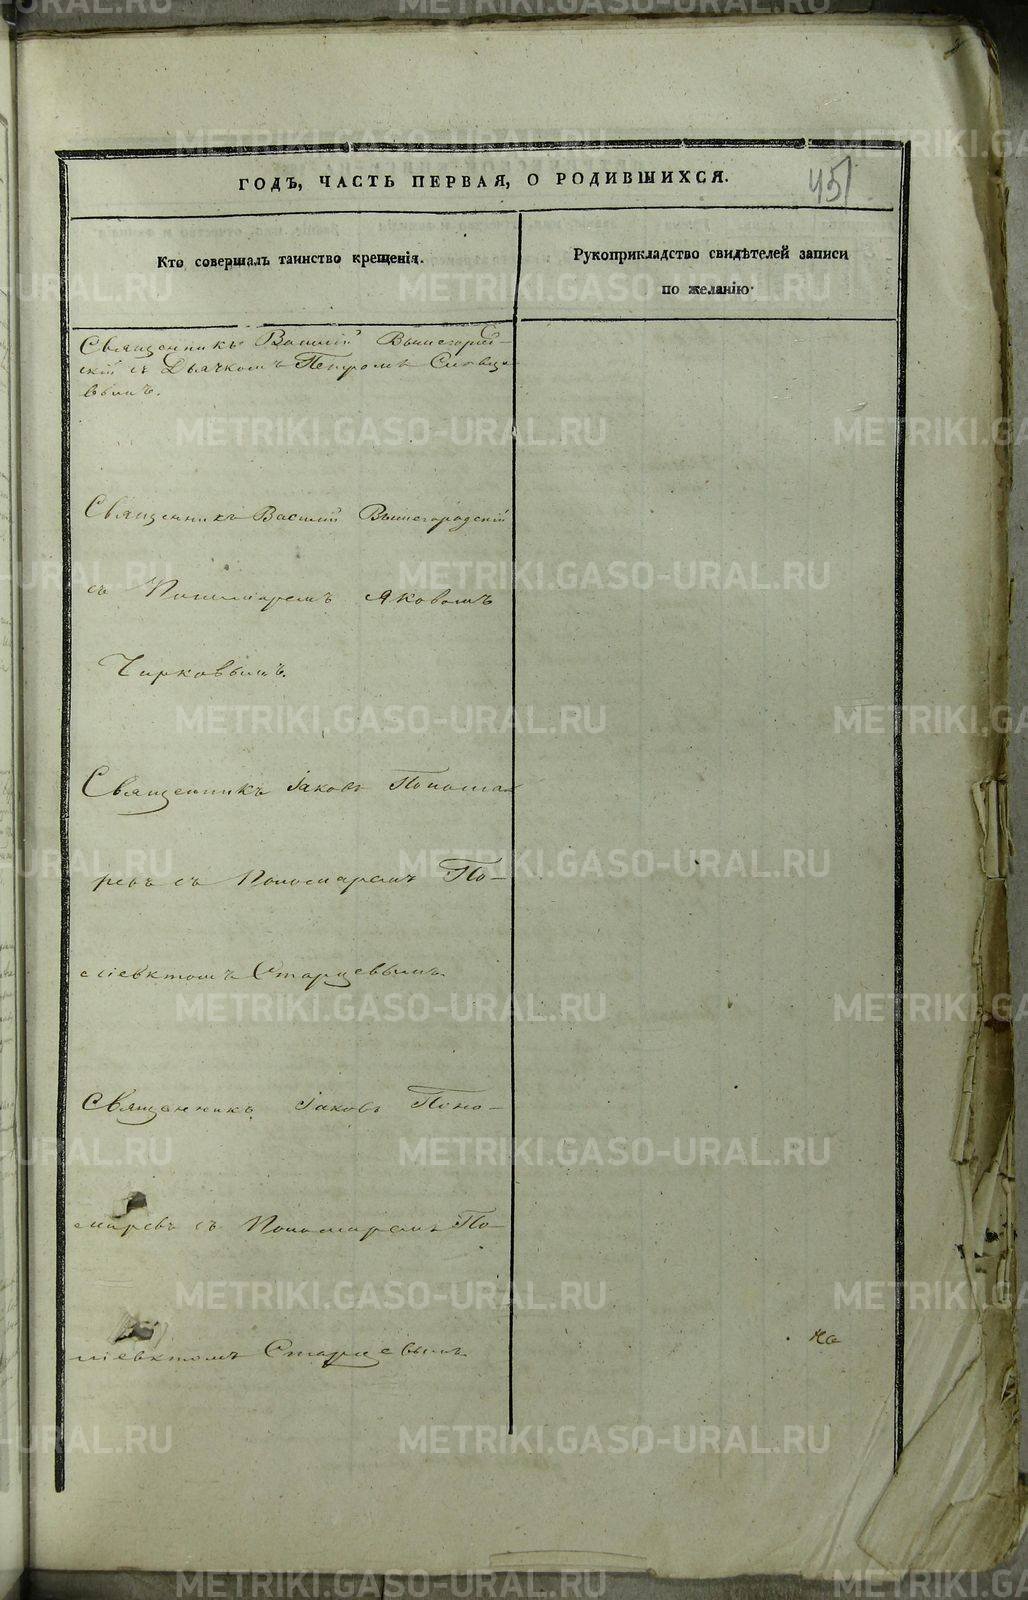 ГОДЪ, ЧАСТЬ ПЕРВАЯ, О РОДИВШИХСЯ.
451
Кто совершалъ таинство крещенія.
Рукоприкладство свидѣтелей записи
по желанію.
Священникъ Василій Вышегород-
скій съ Дьячкомъ Петромъ
вымъ.
Священникъ Василій Вышегородскій
съ Пономаремъ Яковомъ
Чирковымъ.
Священникъ Іаковъ Понома-
ревъ съ Пономаремъ По-
ліевктомъ Старцевымъ.
Священникъ Іаковъ Поно-
маревъ съ Пономаремъ По-
ліевктомъ Старцевымъ.
На
METRIKI.GASO-URAL.RU